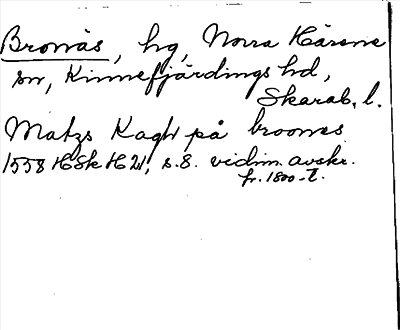 Bronäs, hg, Norra Härene
sn, Kinnefjärdings hd,
Skarab. l.
Matzs Kagh på broones
1558 HSkH 21, s. 8. vidim. avskr.
fr. 1800-t.